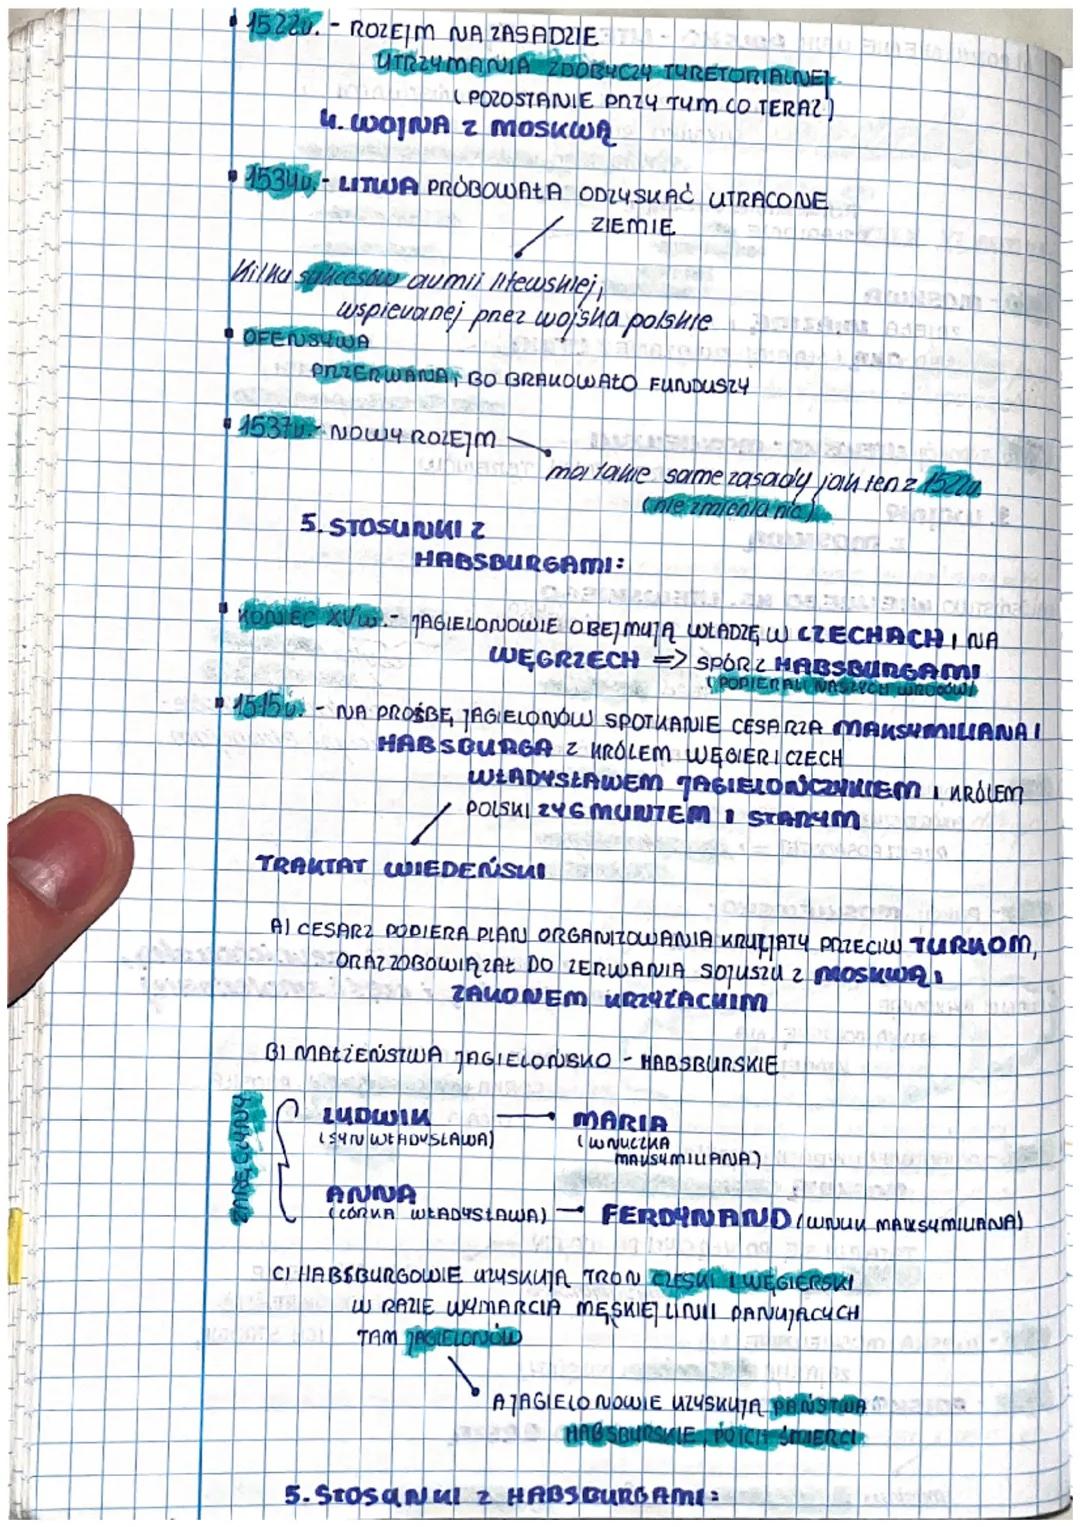 1522r. - ROZEJM NA ZASADZIE
UTRZYMANIA ZDOBYCZY TYRETORIALNEJ
(POZOSTANIE PRZY TYM CO TERAZ)
4. WOJNA Z MOSKWĄ
1534r. - LITWA PRÓBOWAŁA ODZYSKAĆ UTRACONE
ZIEMIE
Kilka sukcesów armii litewskiej,
wspieranej przez wojska polskie
OFENSYWA
PRZERWANA, BO BRAKOWAŁO FUNDUSZY
1537r. - NOWY ROZEJM
ma takie same zasady jak ten z 1522r.
(nie zmienia nic)
5. STOSUNKI Z
HABSBURGAMI:
KONIEC XV w. - JAGIELONOWIE OBEJMUJĄ WŁADZĘ W CZECHACH I NA
WĘGRZECH => SPÓR Z HABSBURGAMI
(POPIERALI NASZYCH WROGÓW)
1515r. - NA PROŚBĘ JAGIELONÓW SPOTKANIE CESARZA MAKSYMILIANA I
HABSBURGA Z KRÓLEM WĘGIER I CZECH
WŁADYSŁAWEM JAGIELOŃCZYKIEM I KRÓLEM
POLSKI ZYGMUNTEM I STARYM
TRAKTAT WIEDEŃSKI
A) CESARZ POPIERA PLAN ORGANIZOWANIA KRUCJATY PRZECIW TURKOM,
ORAZ ZOBOWIĄZAŁ DO ZERWANIA SOJUSZU Z MOSKWĄ I
ZAKONEM KRZYŻACKIM
B) MAŁŻEŃSTWA JAGIELOŃSKO - HABSBURSKIE
ZARĘCZYNY
LUDWIK → MARIA
(SYN WŁADYSŁAWA) (WNUCZKA
MAKSYMILIANA)
ANNA
(CÓRKA WŁADYSŁAWA) → FERDYNAND (WNUK MAKSYMILIANA)
C) HABSBURGOWIE UZYSKUJĄ TRON CZESKI I WĘGIERSKI
W RAZIE WYMARCIA MĘSKIEJ LINII PANUJĄCYCH
TAM JAGIELONÓW
A JAGIELONOWIE UZYSKUJĄ PAŃSTWA
HABSBURSKIE, PO ICH ŚMIERCI
5. STOSUNKI Z HABSBURGAMI: